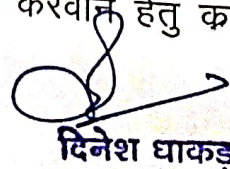 करवाने हेतु क
दिनेश धाकड़